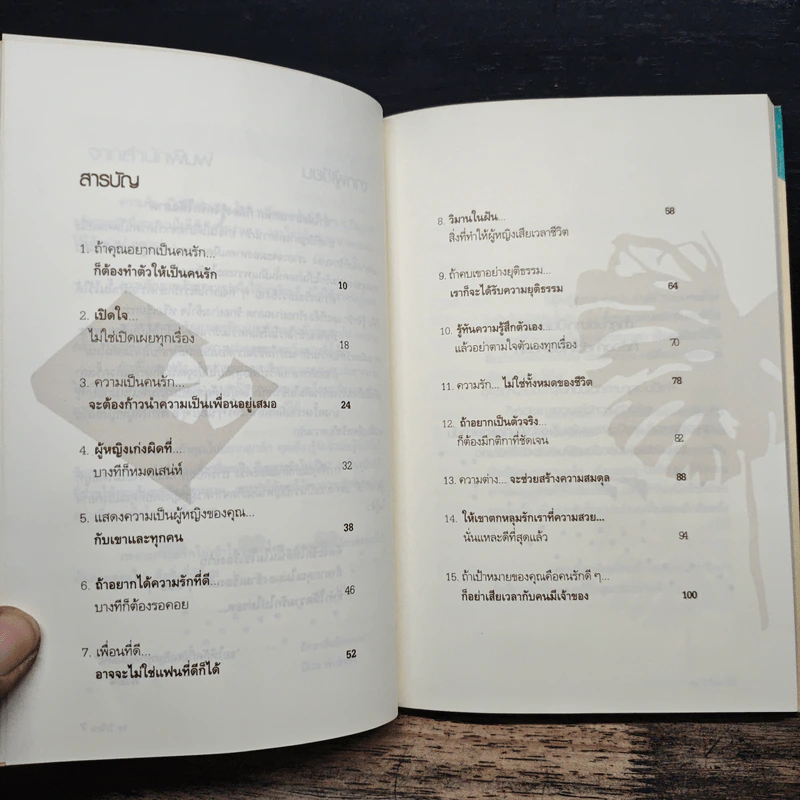 สารบัญ
1. ถ้าคุณอยากเป็นคนรัก...
ก็ต้องทำตัวให้เป็นคนรัก 10
2. เปิดใจ...
ไม่ใช่เปิดเผยทุกเรื่อง 18
3. ความเป็นคนรัก...
จะต้องก้าวนำความเป็นเพื่อนอยู่เสมอ 24
4. ผู้หญิงเก่งผิดที่...
บางทีก็หมดเสน่ห์ 32
5. แสดงความเป็นผู้หญิงของคุณ...
กับเขาและทุกคน 38
6. ถ้าอยากได้ความรักที่ดี...
บางทีก็ต้องรอคอย 46
7. เพื่อนที่ดี...
อาจจะไม่ใช่แฟนที่ดีก็ได้ 52
8. วิมานในฝัน... 58
สิ่งที่ทำให้ผู้หญิงเสียเวลาชีวิต
9. ถ้าคบเขาอย่างยุติธรรม...
เราก็จะได้รับความยุติธรรม 64
10. รู้ทันความรู้สึกตัวเอง...
แล้วอย่าตามใจตัวเองทุกเรื่อง 70
11. ความรัก... ไม่ใช่ทั้งหมดของชีวิต 78
12. ถ้าอยากเป็นตัวจริง...
ก็ต้องมีกติกาที่ชัดเจน 82
13. ความต่าง... จะช่วยสร้างความสมดุล 88
14. ให้เขาตกหลุมรักเราที่ความสวย...
นั่นแหละดีที่สุดแล้ว 94
15. ถ้าเป้าหมายของคุณคือคนรักดี ๆ...
ก็อย่าเสียเวลากับคนมีเจ้าของ 100